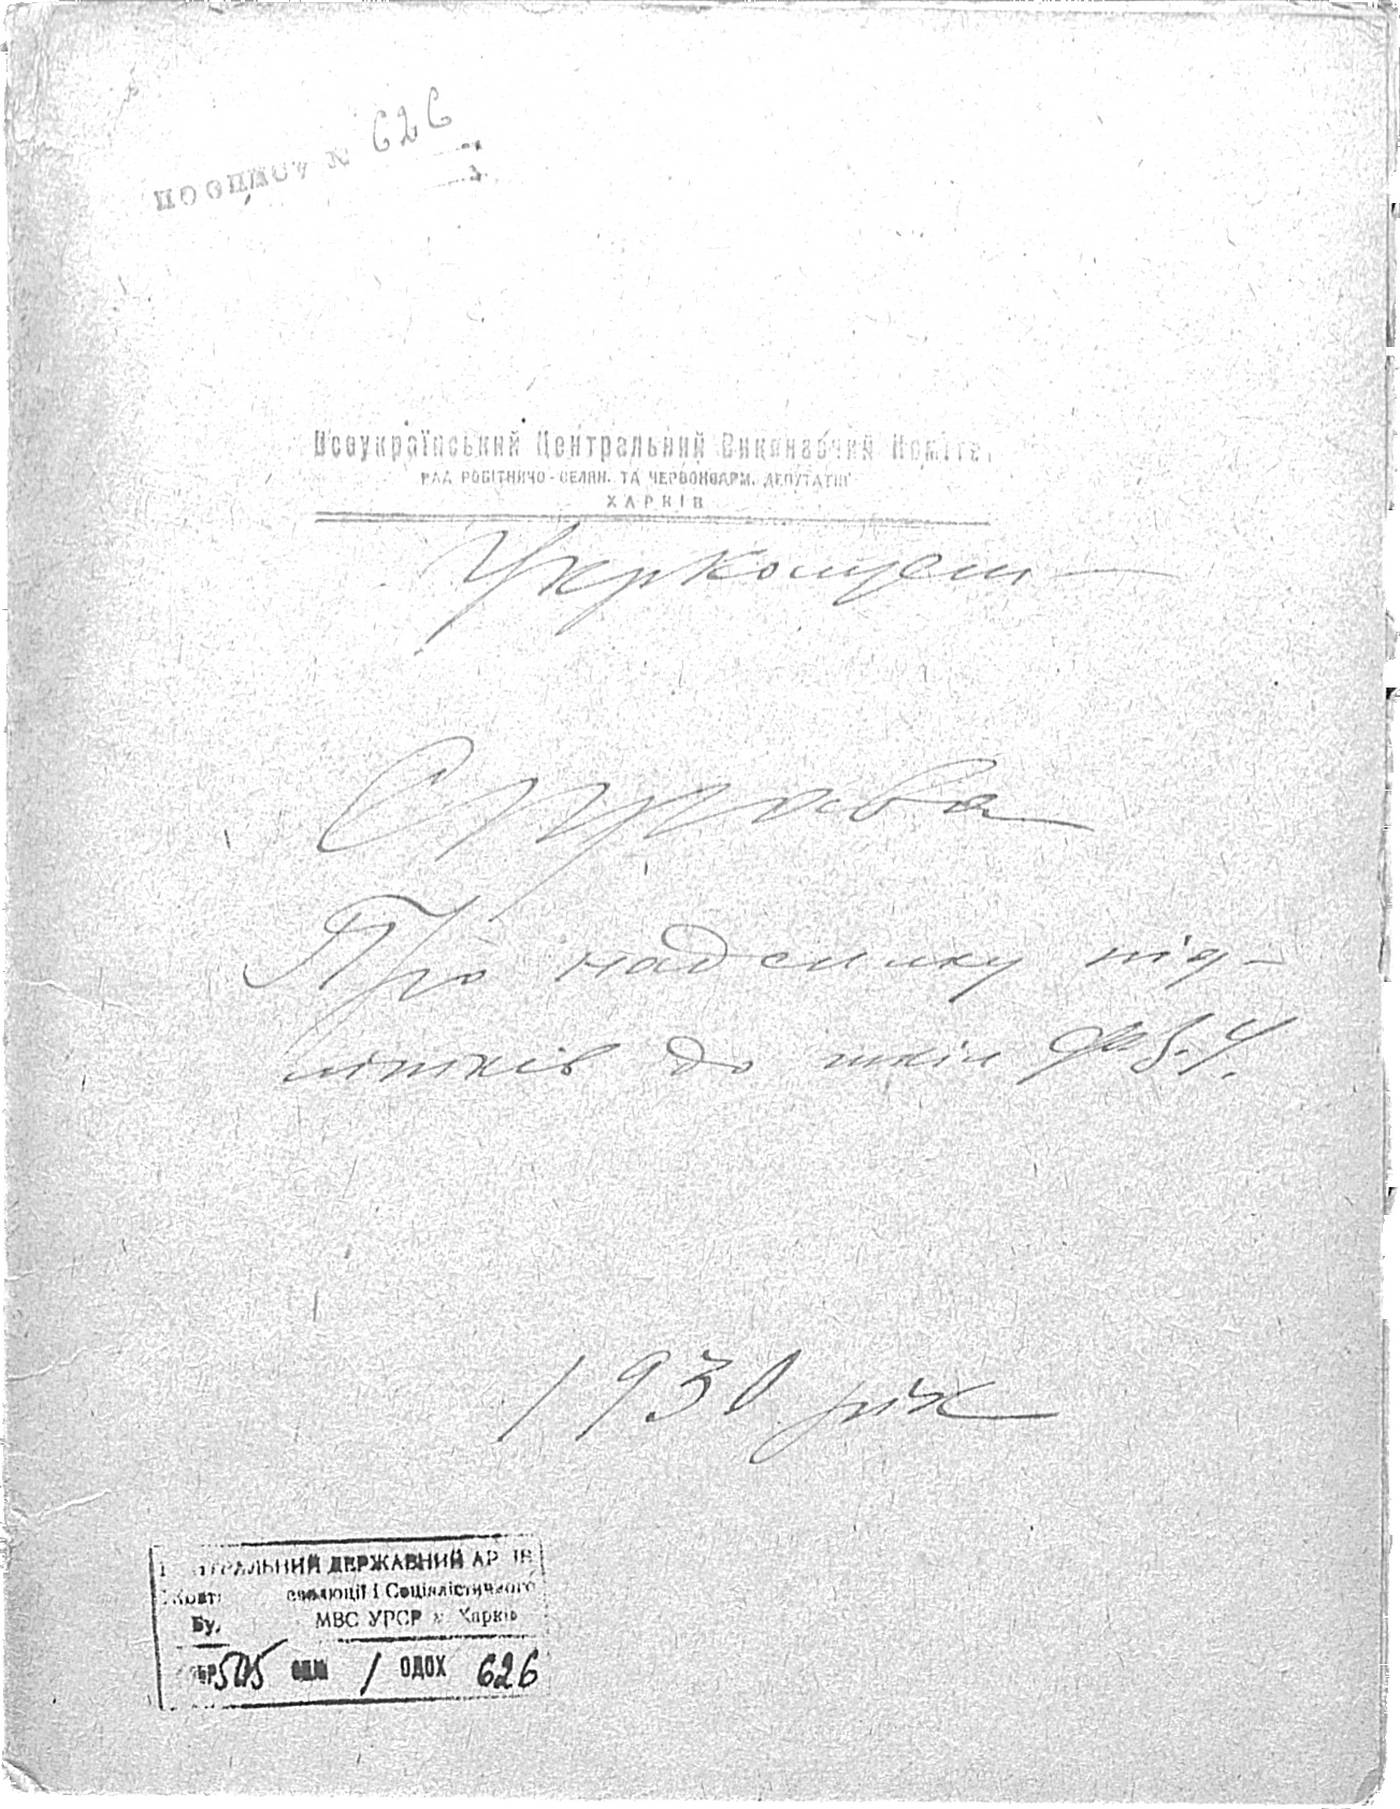 по опису № 626
Всеукраїнський Центральний Виконавчий Комітет
РАД РОБІТНИЧО-СЕЛЯН. ТА ЧЕРВОНОАРМ. ДЕПУТАТІВ
ХАРКІВ
Справа
Про надсилку під-
літків до шкіл Ф.З.У.
1930 рік
ТРАЛЬНИЙ ДЕРЖАВНИЙ АР ІВ
Жовт еволюції і Соціалістичного
Бу. МВС УРСР м. Харків
505 1 ОДОХ 626